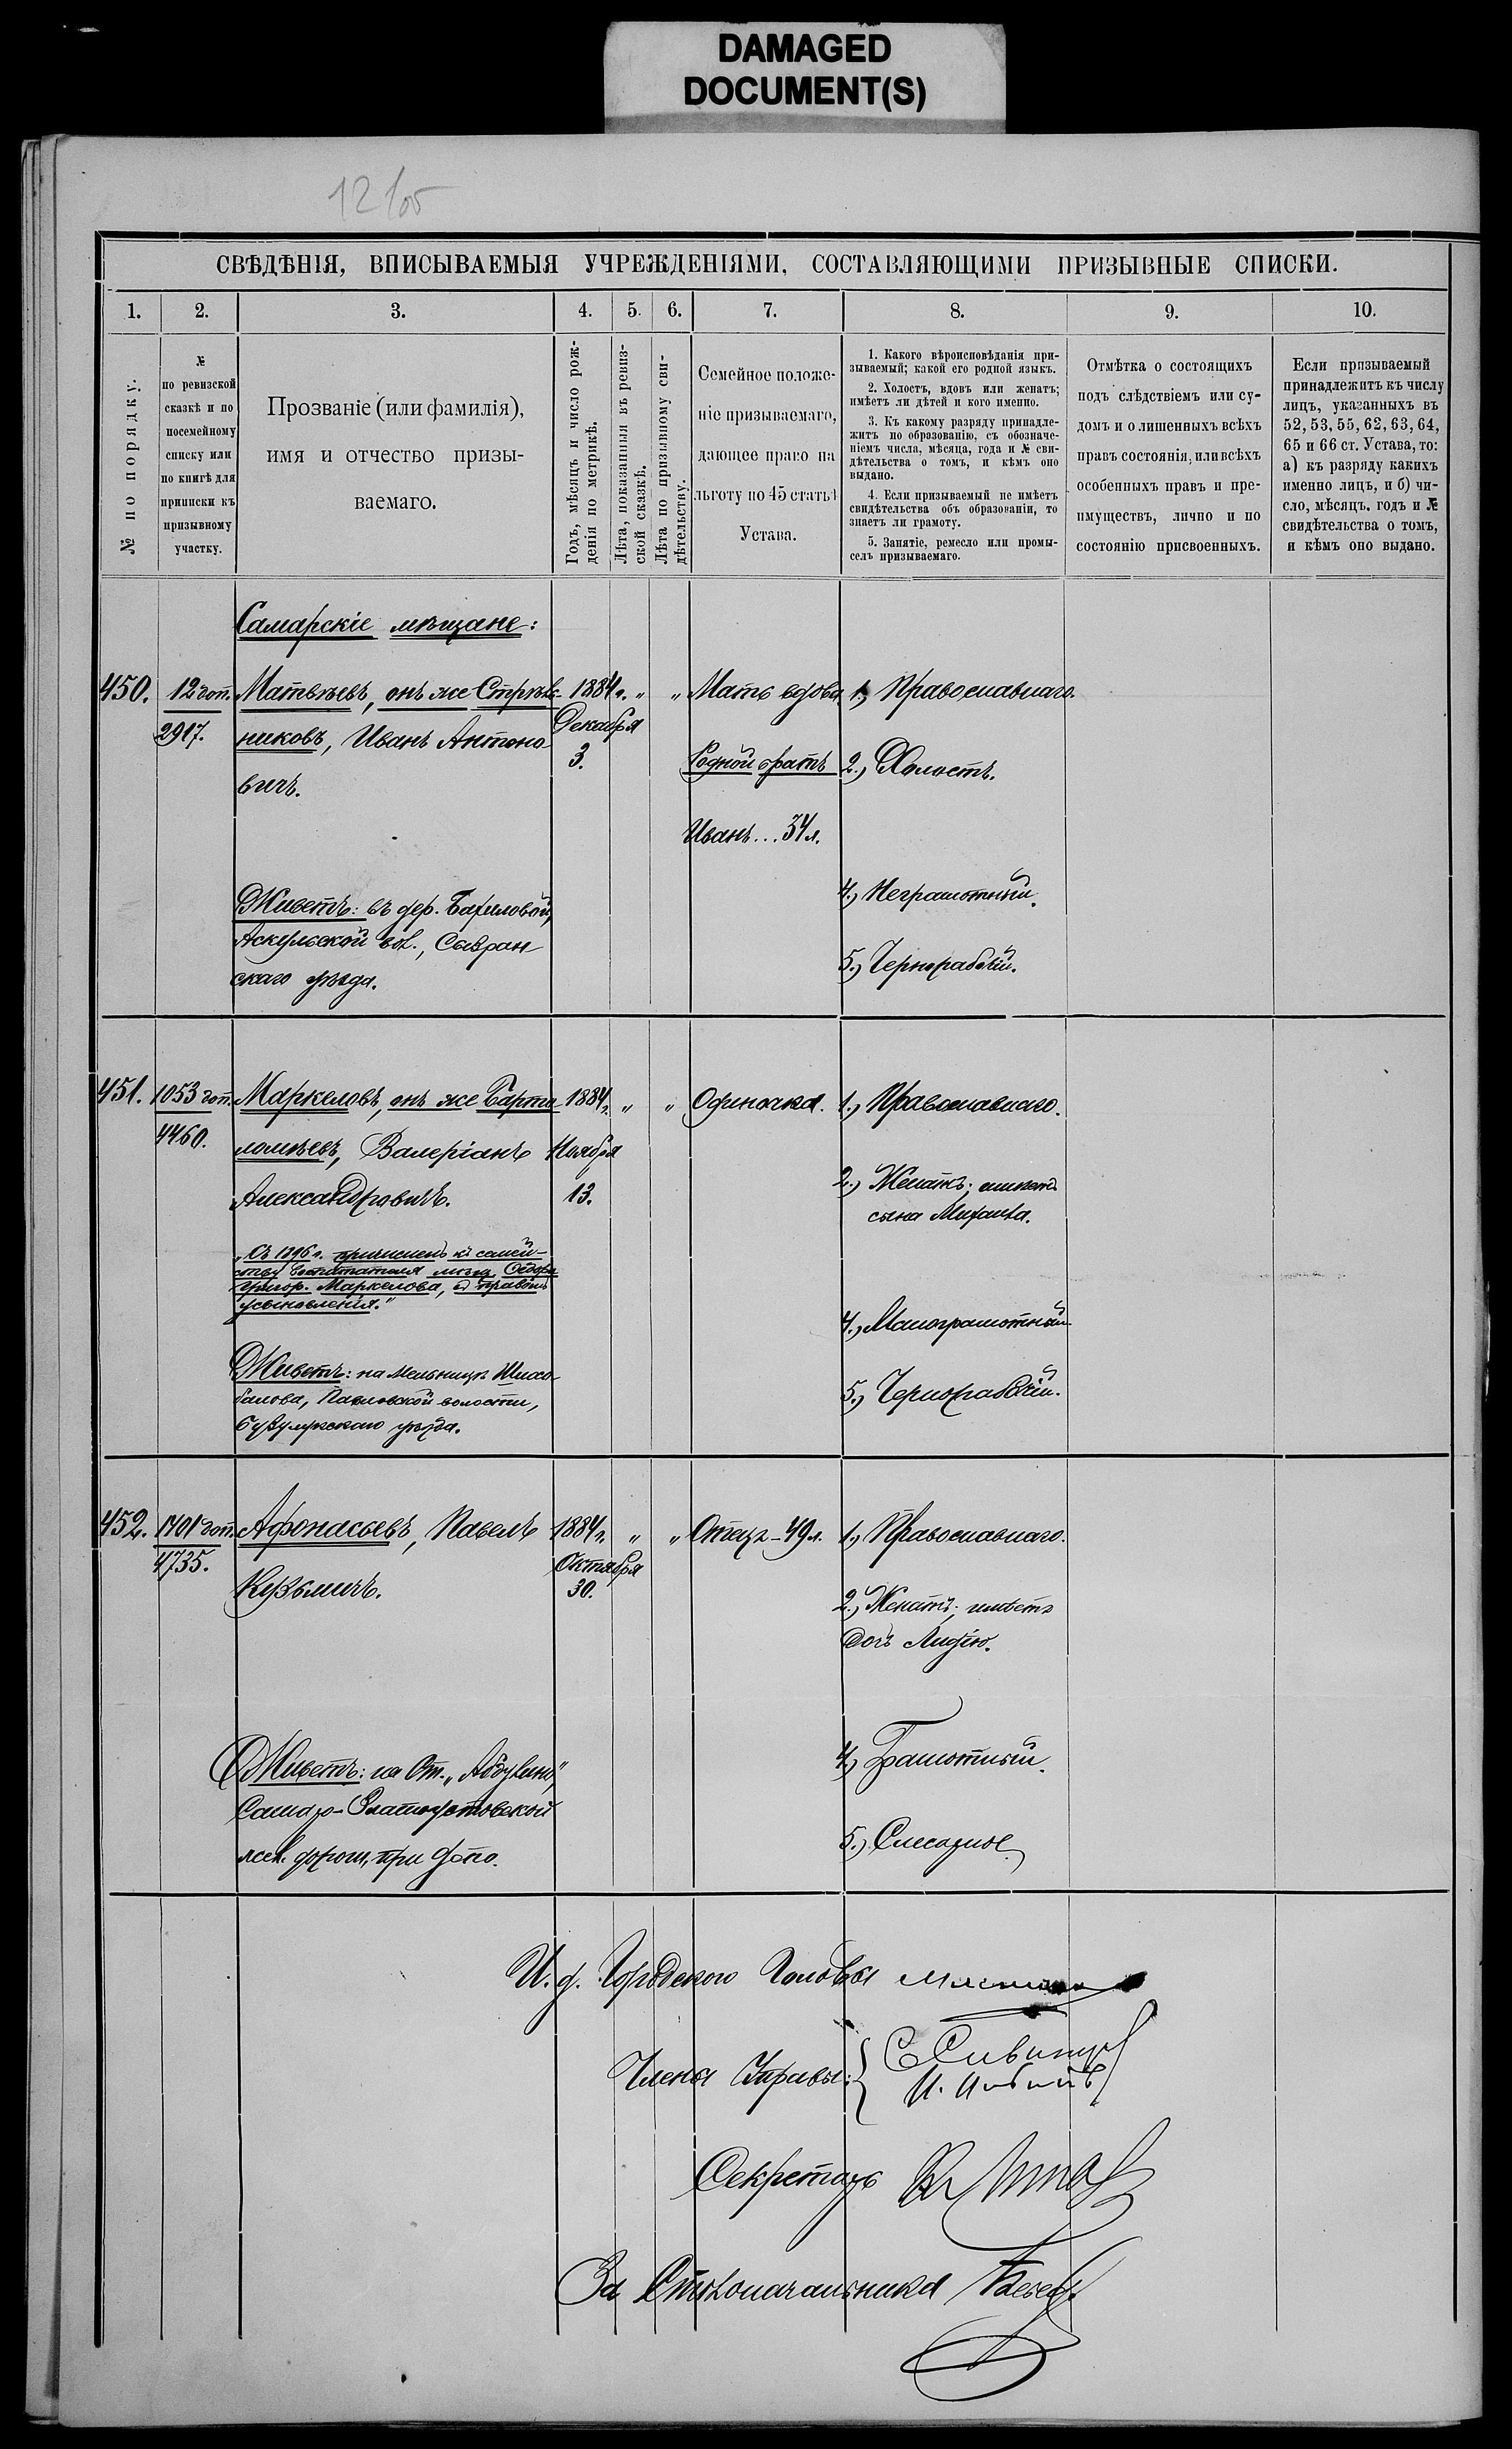 DAMAGED
DOCUMENT(S)
12 об
СВѢДѢНІЯ, ВПИСЫВАЕМЫЯ УЧРЕЖДЕНІЯМИ, СОСТАВЛЯЮЩИМИ ПРИЗЫВНЫЕ СПИСКИ.
1. 2. 3. 4. 5. 6. 7. 8. 9. 10.
№ по порядку.
№
по ревизской
сказкѣ и по
посемейному
списку или
по книгѣ для
приписки къ
призывному
участку.
Прозваніе (или фамилія),
имя и отчество призы-
ваемаго.
Годъ, мѣсяцъ и число рож-
денія по метрикѣ.
Лѣта, показанныя въ ревиз-
ской сказкѣ.
Лѣта по призывному сви-
дѣтельству.
Семейное положе-
ніе призываемаго,
дающее право на
льготу по 45 статьѣ
Устава.
1. Какого вѣроисповѣданія при-
зываемый; какой его родной языкъ.
2. Холостъ, вдовъ или женатъ;
имѣетъ ли дѣтей и кого именно.
3. Къ какому разряду принадле-
житъ по образованію, съ обозначе-
ніемъ числа, мѣсяца, года и № сви-
дѣтельства о томъ, и кѣмъ оно
выдано.
4. Если призываемый не имѣетъ
свидѣтельства объ образованіи, то
знаетъ ли грамоту.
5. Занятіе, ремесло или промы-
селъ призываемаго.
Отмѣтка о состоящихъ
подъ слѣдствіемъ или су-
домъ и о лишенныхъ всѣхъ
правъ состоянія, или всѣхъ
особенныхъ правъ и пре-
имуществъ, лично и по
состоянію присвоенныхъ.
Если призываемый
принадлежитъ къ числу
лицъ, указанныхъ въ
52, 53, 55, 62, 63, 64,
65 и 66 ст. Устава, то:
а) къ разряду какихъ
именно лицъ, и б) чи-
сло, мѣсяцъ, годъ и №
свидѣтельства о томъ,
и кѣмъ оно выдано.
Самарскіе мѣщане:
450.
12 доп.
2917.
Матвѣевъ, онъ же Стрѣль-
никовъ, Иванъ Антоно-
вичъ.
Живетъ: въ дер. Бахиловой,
Аскульской вол., Сызран-
скаго уѣзда.
1884 г.
Декабря
3.
" "
Мать вдова,
Родной братъ
Иванъ... 34 л.
1.) Православнаго.
2.) Холостъ.
4.) Неграмотный.
5.) Чернорабочій.
451.
1053 доп.
4460.
Маркеловъ, онъ же Барто-
ломѣевъ, Валеріанъ
Александровичъ.
"Съ 1896 г. причисленъ къ семей-
ству воспитателя Ѳедора
Григор. Маркелова, съ правомъ
усыновленія."
Живетъ: на мельницѣ Шихо-
балова, Павловской волости,
Бузулукскаго уѣзда.
1884 г.
Ноября
13.
" "
Одиночка.
1.) Православнаго.
2.) Женатъ; имѣетъ
сына Михаила.
4.) Малограмотный.
5.) Чернорабочій.
452.
1401 доп.
4735.
Афонасьевъ, Павелъ
Кузьмичъ.
Живетъ: на Ст. "Абдулино",
Самаро-Златоустовской
жел. дороги, при депо.
1884 г.
Октября
30.
" "
Отецъ - 49 л.
1.) Православнаго.
2.) Женатъ; имѣетъ
дочь Лидію.
4.) Грамотный.
5.) Слесарное.
И. д. Городского Головы
Члены Управы:
Секретарь
За Столоначальника